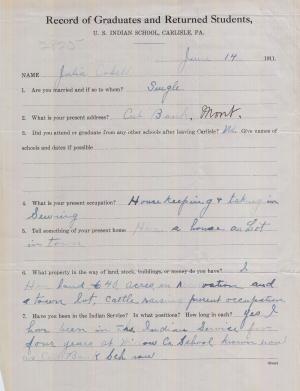 Record of Graduates and Returned Students,
U. S. INDIAN SCHOOL, CARLISLE, PA.
June 14 1911.
NAME Julia
1. Are you married and if so to whom? Single
2. What is your present address? Cut Bank, Mont.
3. Did you attend or graduate from any other schools after leaving Carlisle? No Give names of
schools and dates if possible
4. What is your present occupation? Housekeeping & taking in
Sewing
5. Tell something of your present home Have a house and Lot
in town
6. What property in the way of land, stock, buildings, or money do you have? I
Have land and
a town lot, Cattle raising present occupation
7. Have you been in the Indian Service? In what positions? How long in each? Yes I
have been in the Indian Service for
four years at Willow Ca School known now
as Cut Bank School